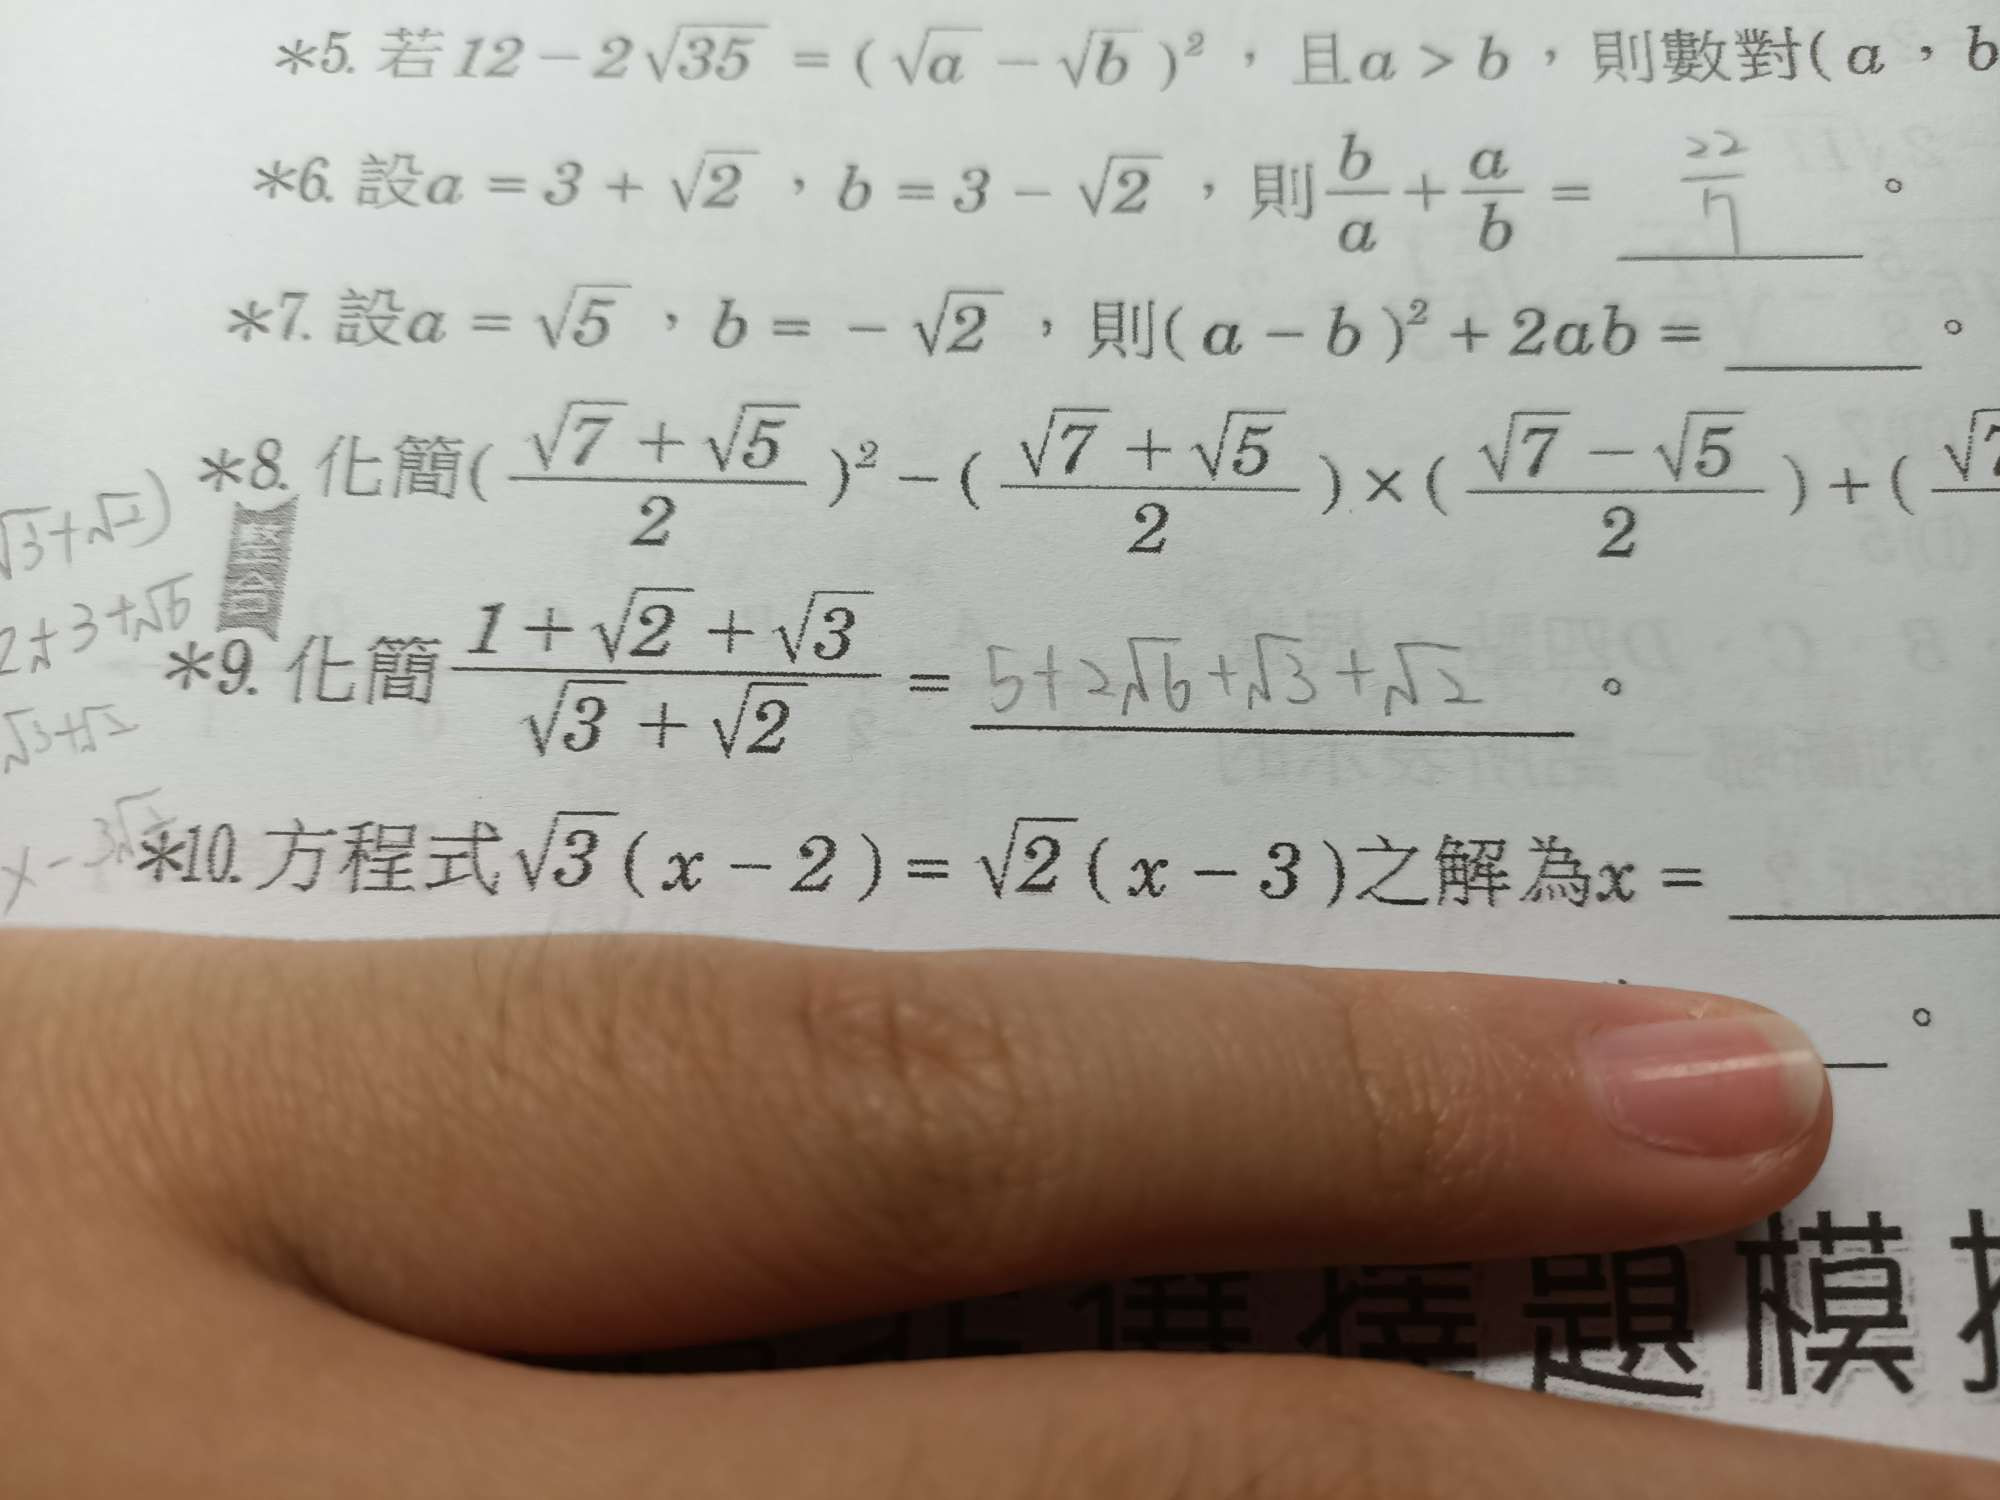 *5. 若12-2√35=(√a-√b)²,且a>b,則數對(a,b
*6. 設a=3+√2,b=3-√2,則b/a+a/b= 22/17 。
*7. 設a=√5,b=-√2,則(a-b)²+2ab=____。
*8. 化簡((√7+√5)/2)²-((√7+√5)/2)×((√7-√5)/2)+(√7
√3+√2)
2+3+√6
*9. 化簡(1+√2+√3)/(√3+√2)= 5+2√6+√3+√2 。
√3+√2
*10. 方程式√3(x-2)=√2(x-3)之解為x=____
。
選擇題模